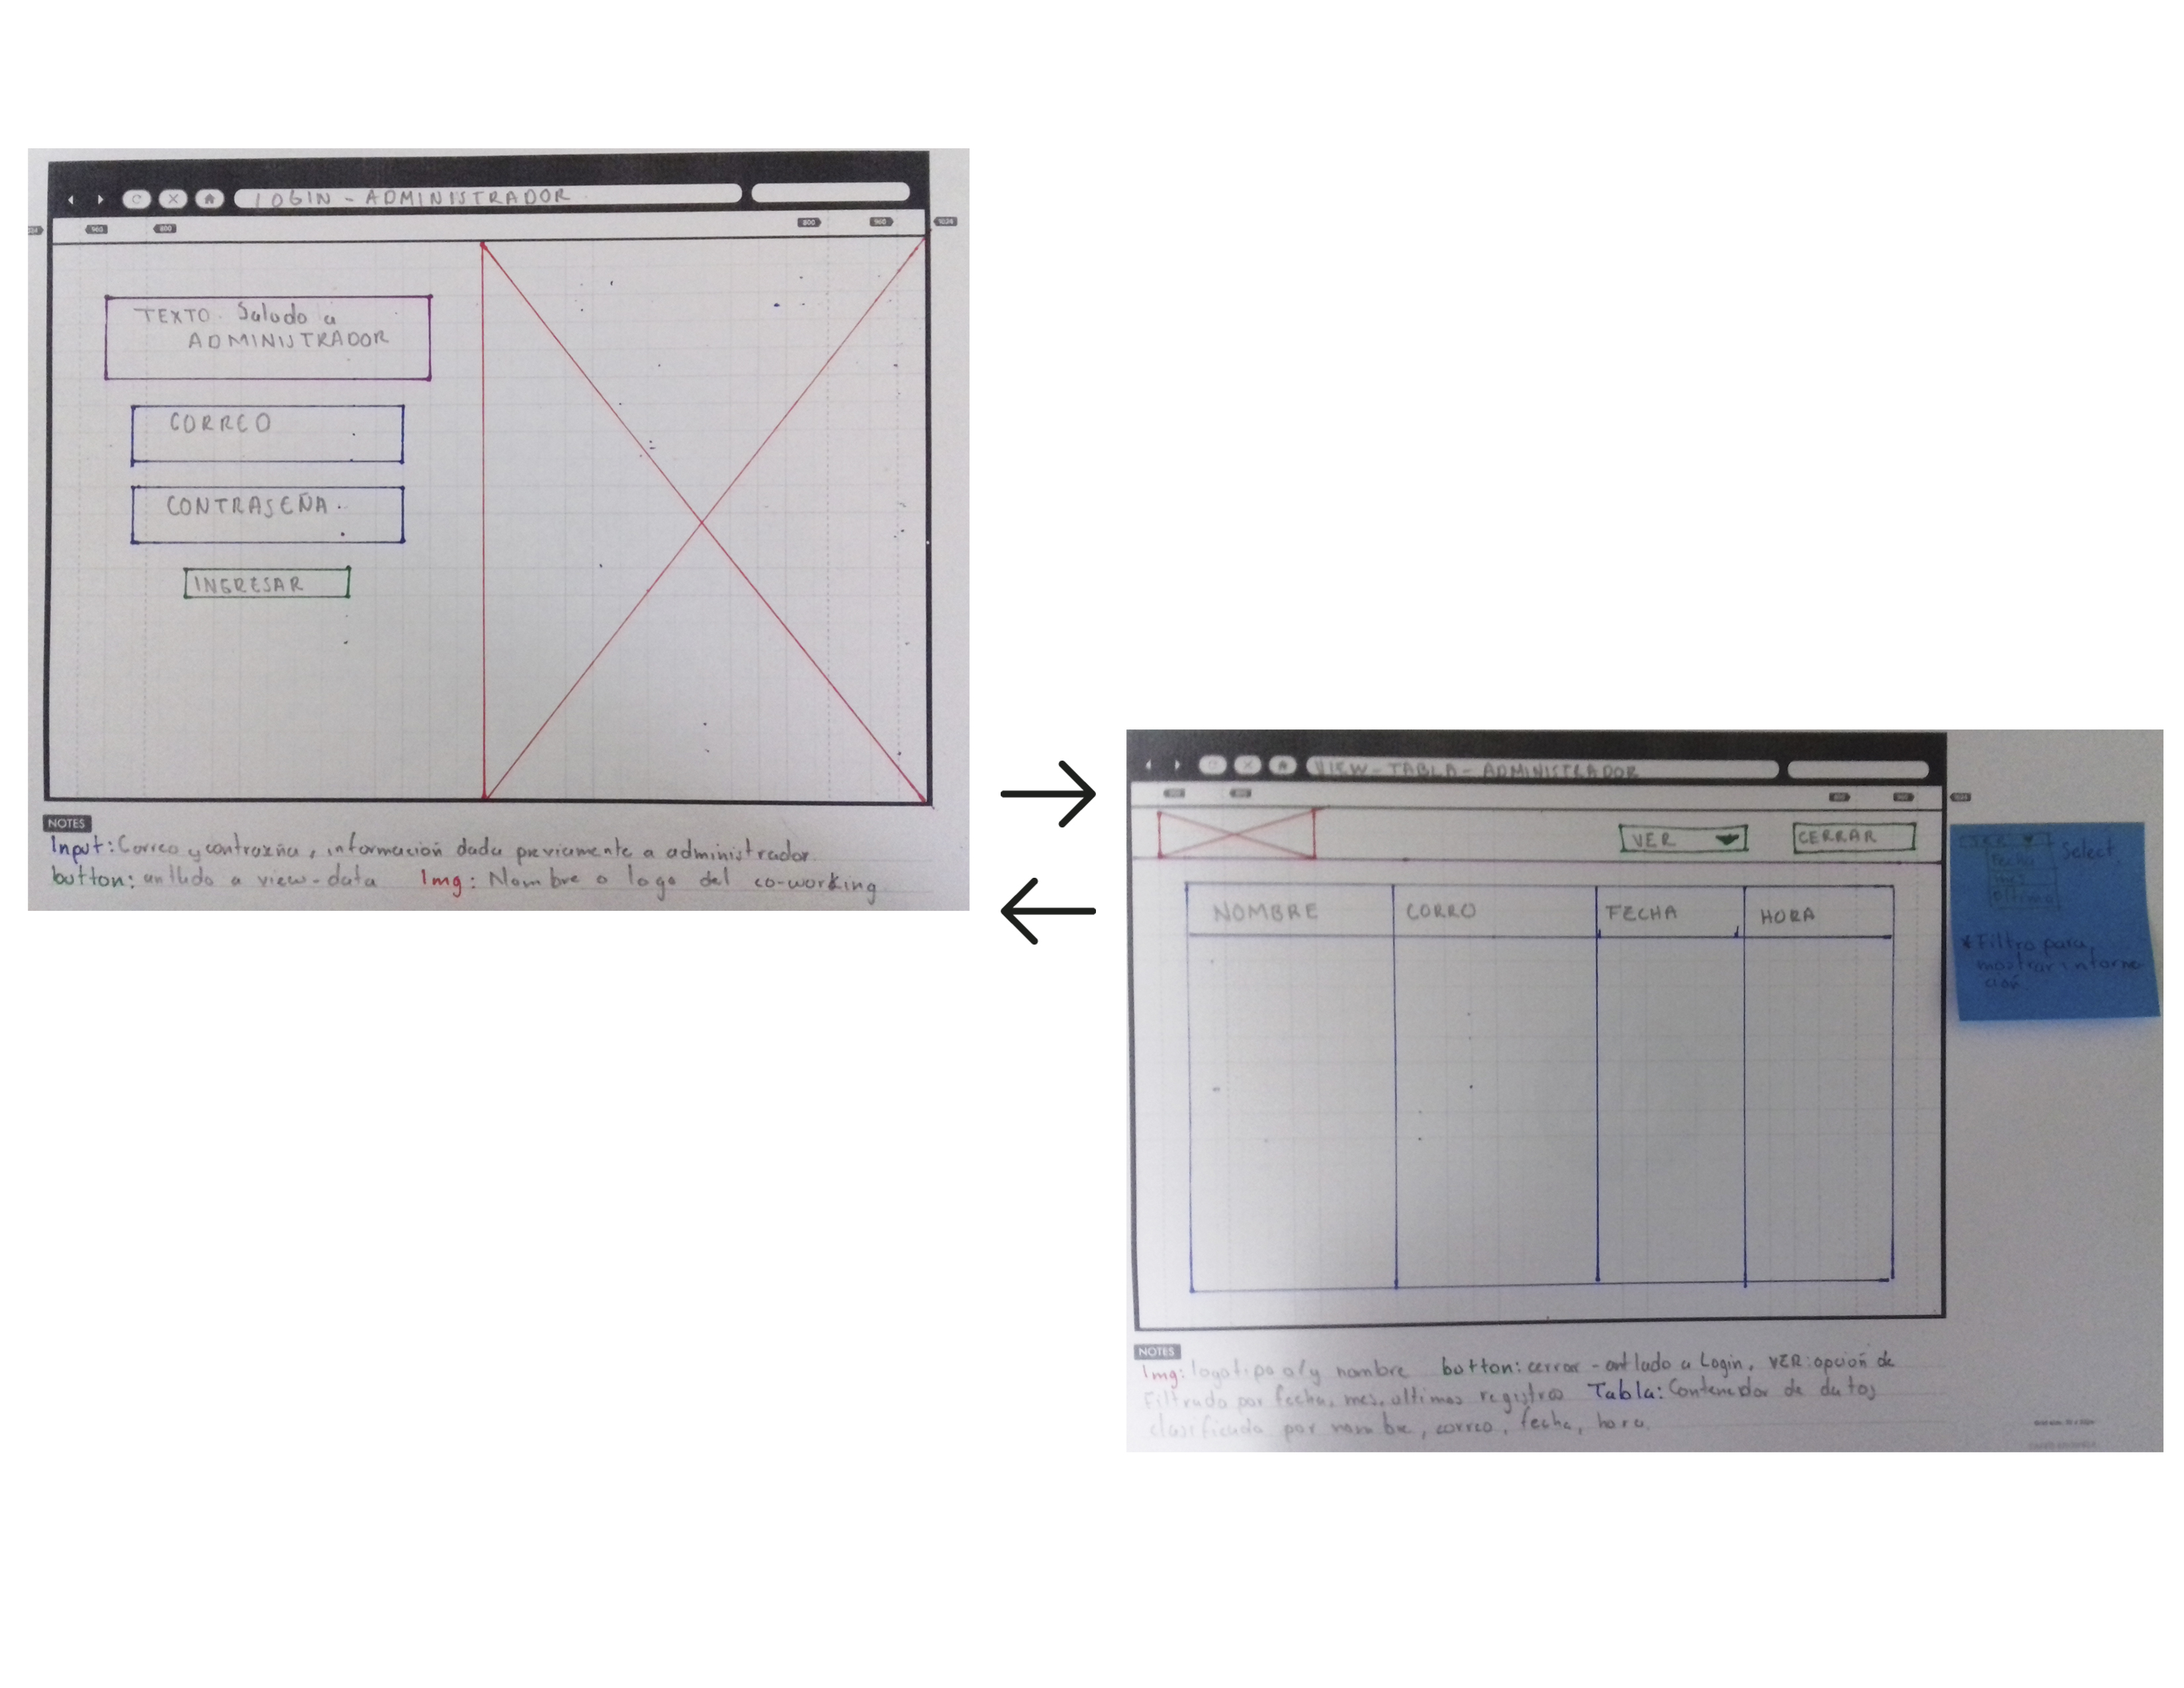 LOGIN - ADMINISTRADOR
960
800
800
960
1024
TEXTO. Saludo a
ADMINISTRADOR
CORREO
CONTRASEÑA.
INGRESAR
NOTES
Input: Correo y contraseña, información dada previamente a administrador.
button: antludo a view-data Img: Nombre o logo del co-working
VIEW-TABLA-ADMINISTRADOR
VER
CERRAR
NOMBRE
CORRO
FECHA
HORA
Select
Fecha
mes
* Filtro para
mostrar informa-
ción
NOTES
Img: logotipo o/y nombre button: cerrar - antludo a Login. VER: opción de
Filtrado por fecha, mes, ultimos registros Tabla: Contenedor de datos
clasificada por nombre, correo, fecha, hora.